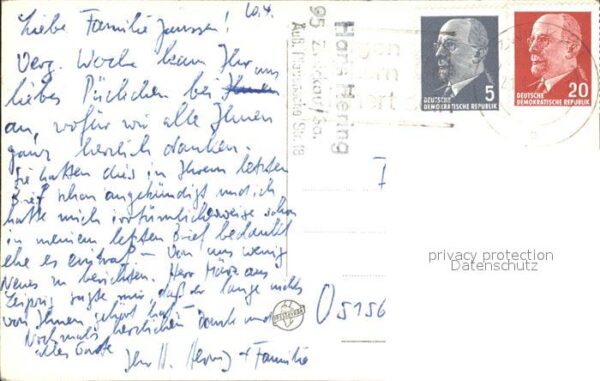 10.4.
Liebe Familie Janssen!
Verg. Woche kam Ihr
liebes Päckchen bei Ihnen uns
an, wofür wir alle Ihnen
ganz herzlich danken.
Sie hatten dies in Ihrem letzten
Brief schon angekündigt und ich
hatte mich irrtümlicherweise schon
in meinem letzten Brief bedankt
ehe es eintraf – Von uns wenig
Neues zu berichten. Herr März aus
Leipzig sagte mir, daß er lange nichts
von Ihnen gehört hat
Nochmals herzlichen Dank und
alles Gute
Ihr H. Hering + Familie
Hans Hering
95 Zwickau/Sa.
Äuß. Str. 18
DEUTSCHE
DEMOKRATISCHE REPUBLIK
5
DEUTSCHE
DEMOKRATISCHE REPUBLIK
20
privacy protection
Datenschutz
05156